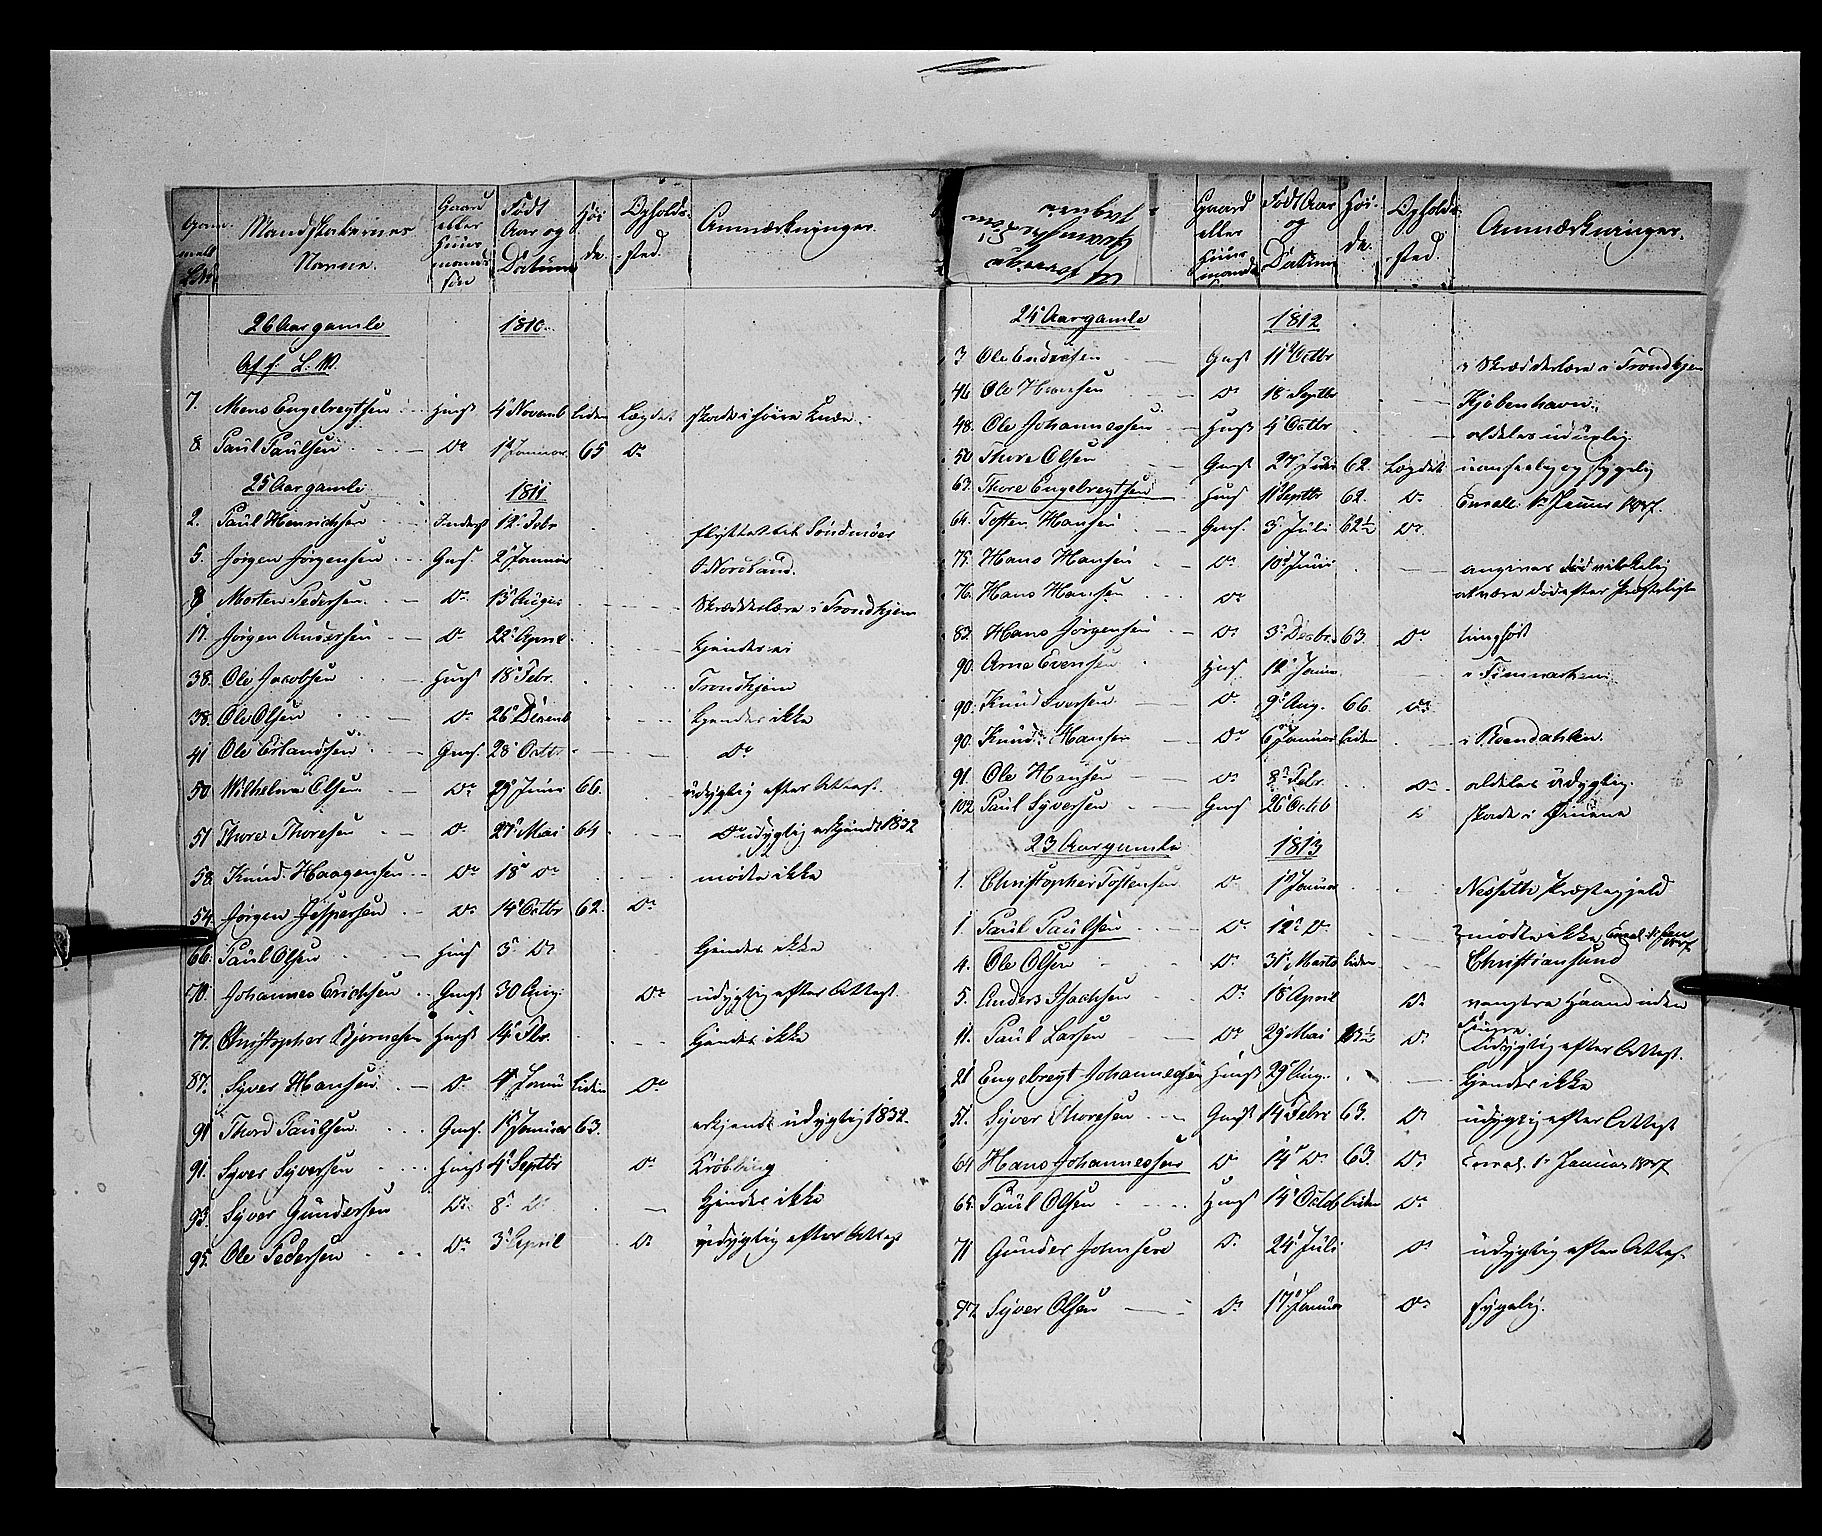 Mandskabernes Navne.
Gaard eller Huusmands Søn
Født Aar og Datum
Høide
Opholdssted.
Anmærkninger.
26 Aar gamle 1810.
Aff. L. W.
7. Mens Engebregtsen Huus 4 Novemb liden Lægdet skade i høire Knæe.
8 Paul Paulsen Do 1 Januar 65 Do
25 Aar gamle 1811
2. Paul Henrichsen Inderst 12 Febr flyttet til Søndmøer
5. Jørgen Jørgensen Gms. 2 Januar Nordland.
8 Morten Pedersen Do 15 August Skrædderlære i Trondhjem
17. Jørgen Andersen Do 22 April kjendes ei
38. Ole Jacobsen Huus 18 Febr. Trondhjem
38. Ole Olsen Do 26 Decemb kjendes ikke
41 Ole Erlandsen Gms. 28 Octbr Do
50 Wilhelm Olsen Do 29 Juni 66. udygtig efter Attest.
51 Thore Thoresen Do 27 Mai 64 Do udygtig erkjendt 1832
58. Knud Haagensen Do 18 Do mødte ikke
54. Jørgen Jespersen Do 14 Octbr 62. Do
66. Paul Olsen Huus 3 Do kjendes ikke
70. Johannes Erichsen Gms 30 Aug. Do udygtig efter Attest.
77. Christopher Bjørnesen Huus 14 Fbr. kjendes ikke
87. Syver Hansen Do 4 Janu liden Do
91 Thord Paulsen Gms. 1 Januar 63. erkjendt udygtig 1832.
91. Syver Syversen Huus 4 Septbr Do Krøbling
93. Syver Gundersen Do 8 Do kjendes ikke
95. Ole Pedersen Do 3 April Do udygtig efter Attest
Gaard eller Huusmands
Født Aar og Datum
Høide.
Opholdssted.
Anmærkninger.
24 Aar gamle 1812
3 Ole Endresen Gms 11 Octbr i Skrædderlære i Trondhjem
46 Ole Hansen Do 18 Septbr Kjøbenhavn.
48. Ole Johannessen Huus 4 Octbr aldeles uduelig.
50 Thore Olsen Gms 27 Juli 62. Lægdet uanseelig og sygelig
63. Thore Engebregtsen Huus 11 Septbr 62. Do Enroll. 1 Januar 1837.
64. Tosten Hansen Gms. 3 Juli 62½ Do
75. Hans Hansen Do 10 Juni angives
76. Hans Hansen Do at være død efter
82. Hans Jørgensen Do 3 Decbr. 63. Do tunghørt
90. Arne Evensen Huus 12 Januar i Finmarken
90. Knud Iversen Do 9 Aug. 66. Do
90. Knud Hansen Do 6 Januar liden i Romsdahlen.
91. Ole Hansen Do 8 Febr. Do aldeles udygtig.
102 Paul Syversen Gms 26 Octb skade i Øinene
23 Aar gamle 1813
1. Christopher Tostensen Do 1 Januar Nessetts Præstegjeld
1. Paul Paulsen Do 12 Do mødte ikke, Enrol. 1 Jan
4. Ole Olsen Do 31 Marts liden Christiansund
5. Anders Isachsen Do 18 April Do venstre Haand uden Fingre
11. Paul Larsen Do 29 Mai Do udygtig efter Attest.
21 Engebregt Johannessen Huus 29 Aug. kjendes ikke
51. Syver Thoresen Gms 14 Febr 63. Do udygtig efter Attest
64 Hans Johannessen Do 14 Do 63. Do Enrol. 1 Januar 1837
65. Paul Olsen Huus 14 Octob liden Do
71 Gunder Johnsen Do 24 Juli Do udygtig efter Attest.
97 Syver Olsen Do 17 Januar Do sygelig.